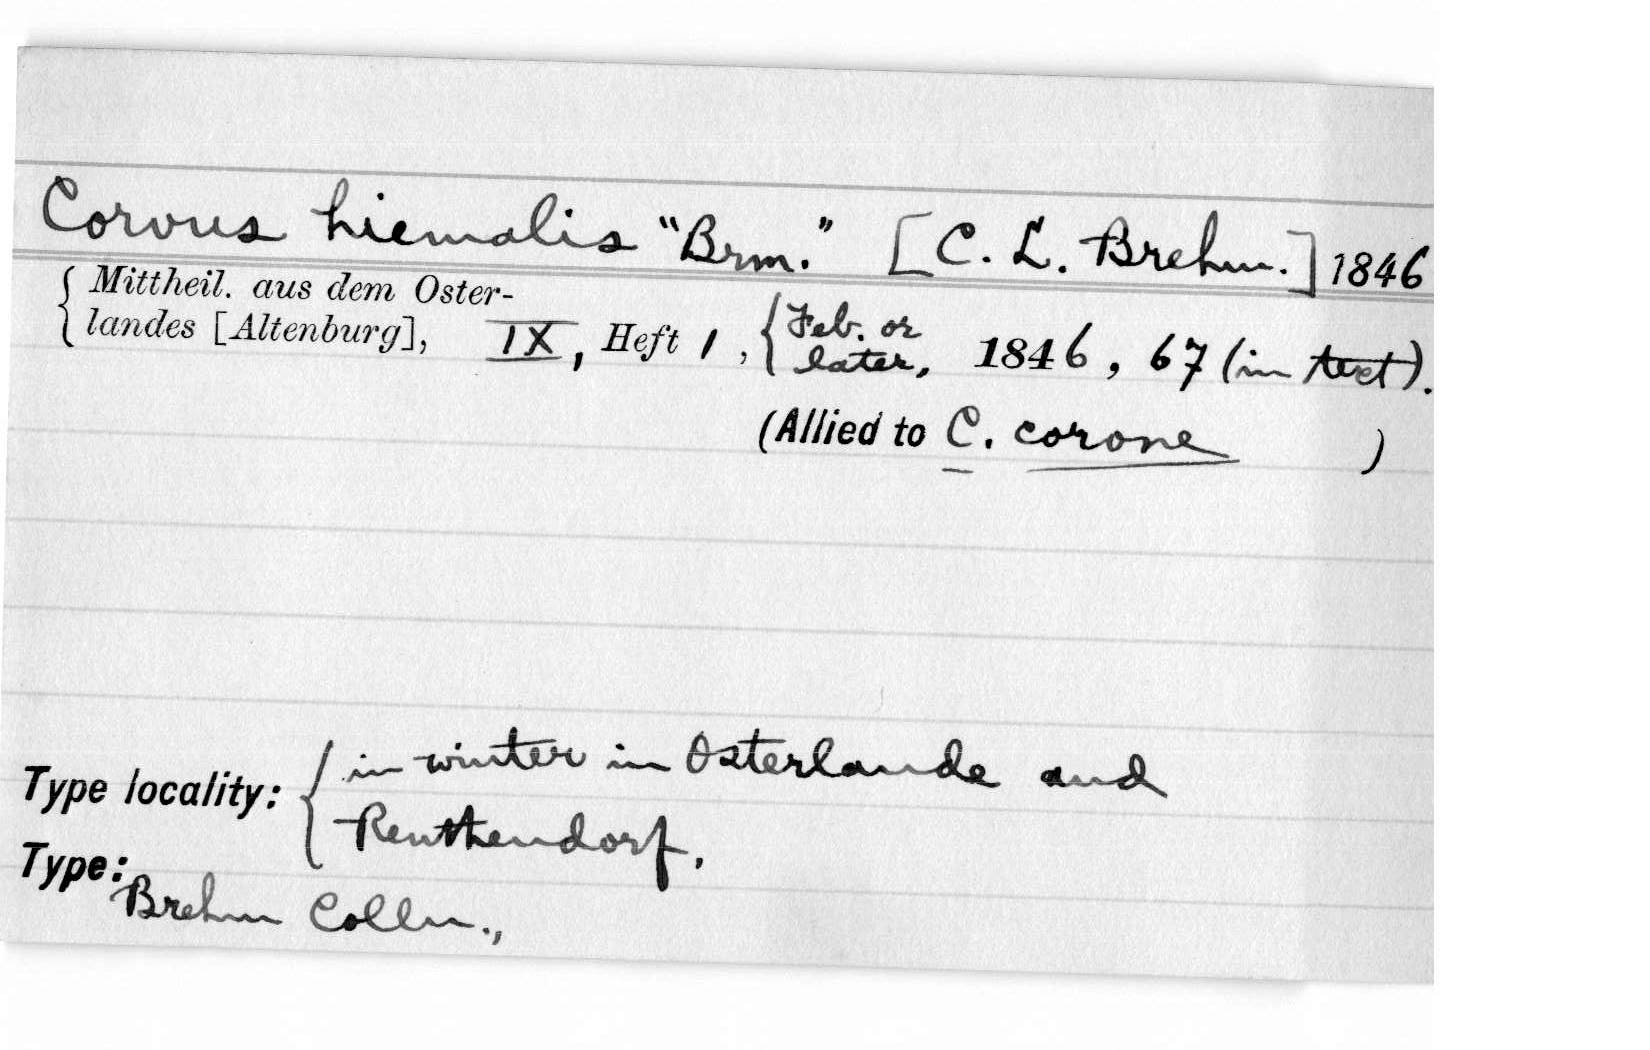 Corvus hiemalis "Brm." [C. L. Brehm.] 1846
{ Mittheil. aus dem Oster-
landes [Altenburg], IX, Heft 1, { Feb. or later, 1846, 67 (in text).
(Allied to C. corone )
Type locality: { in winter in Osterlande and
Renthendorf.
Type:
Brehm Colln.,